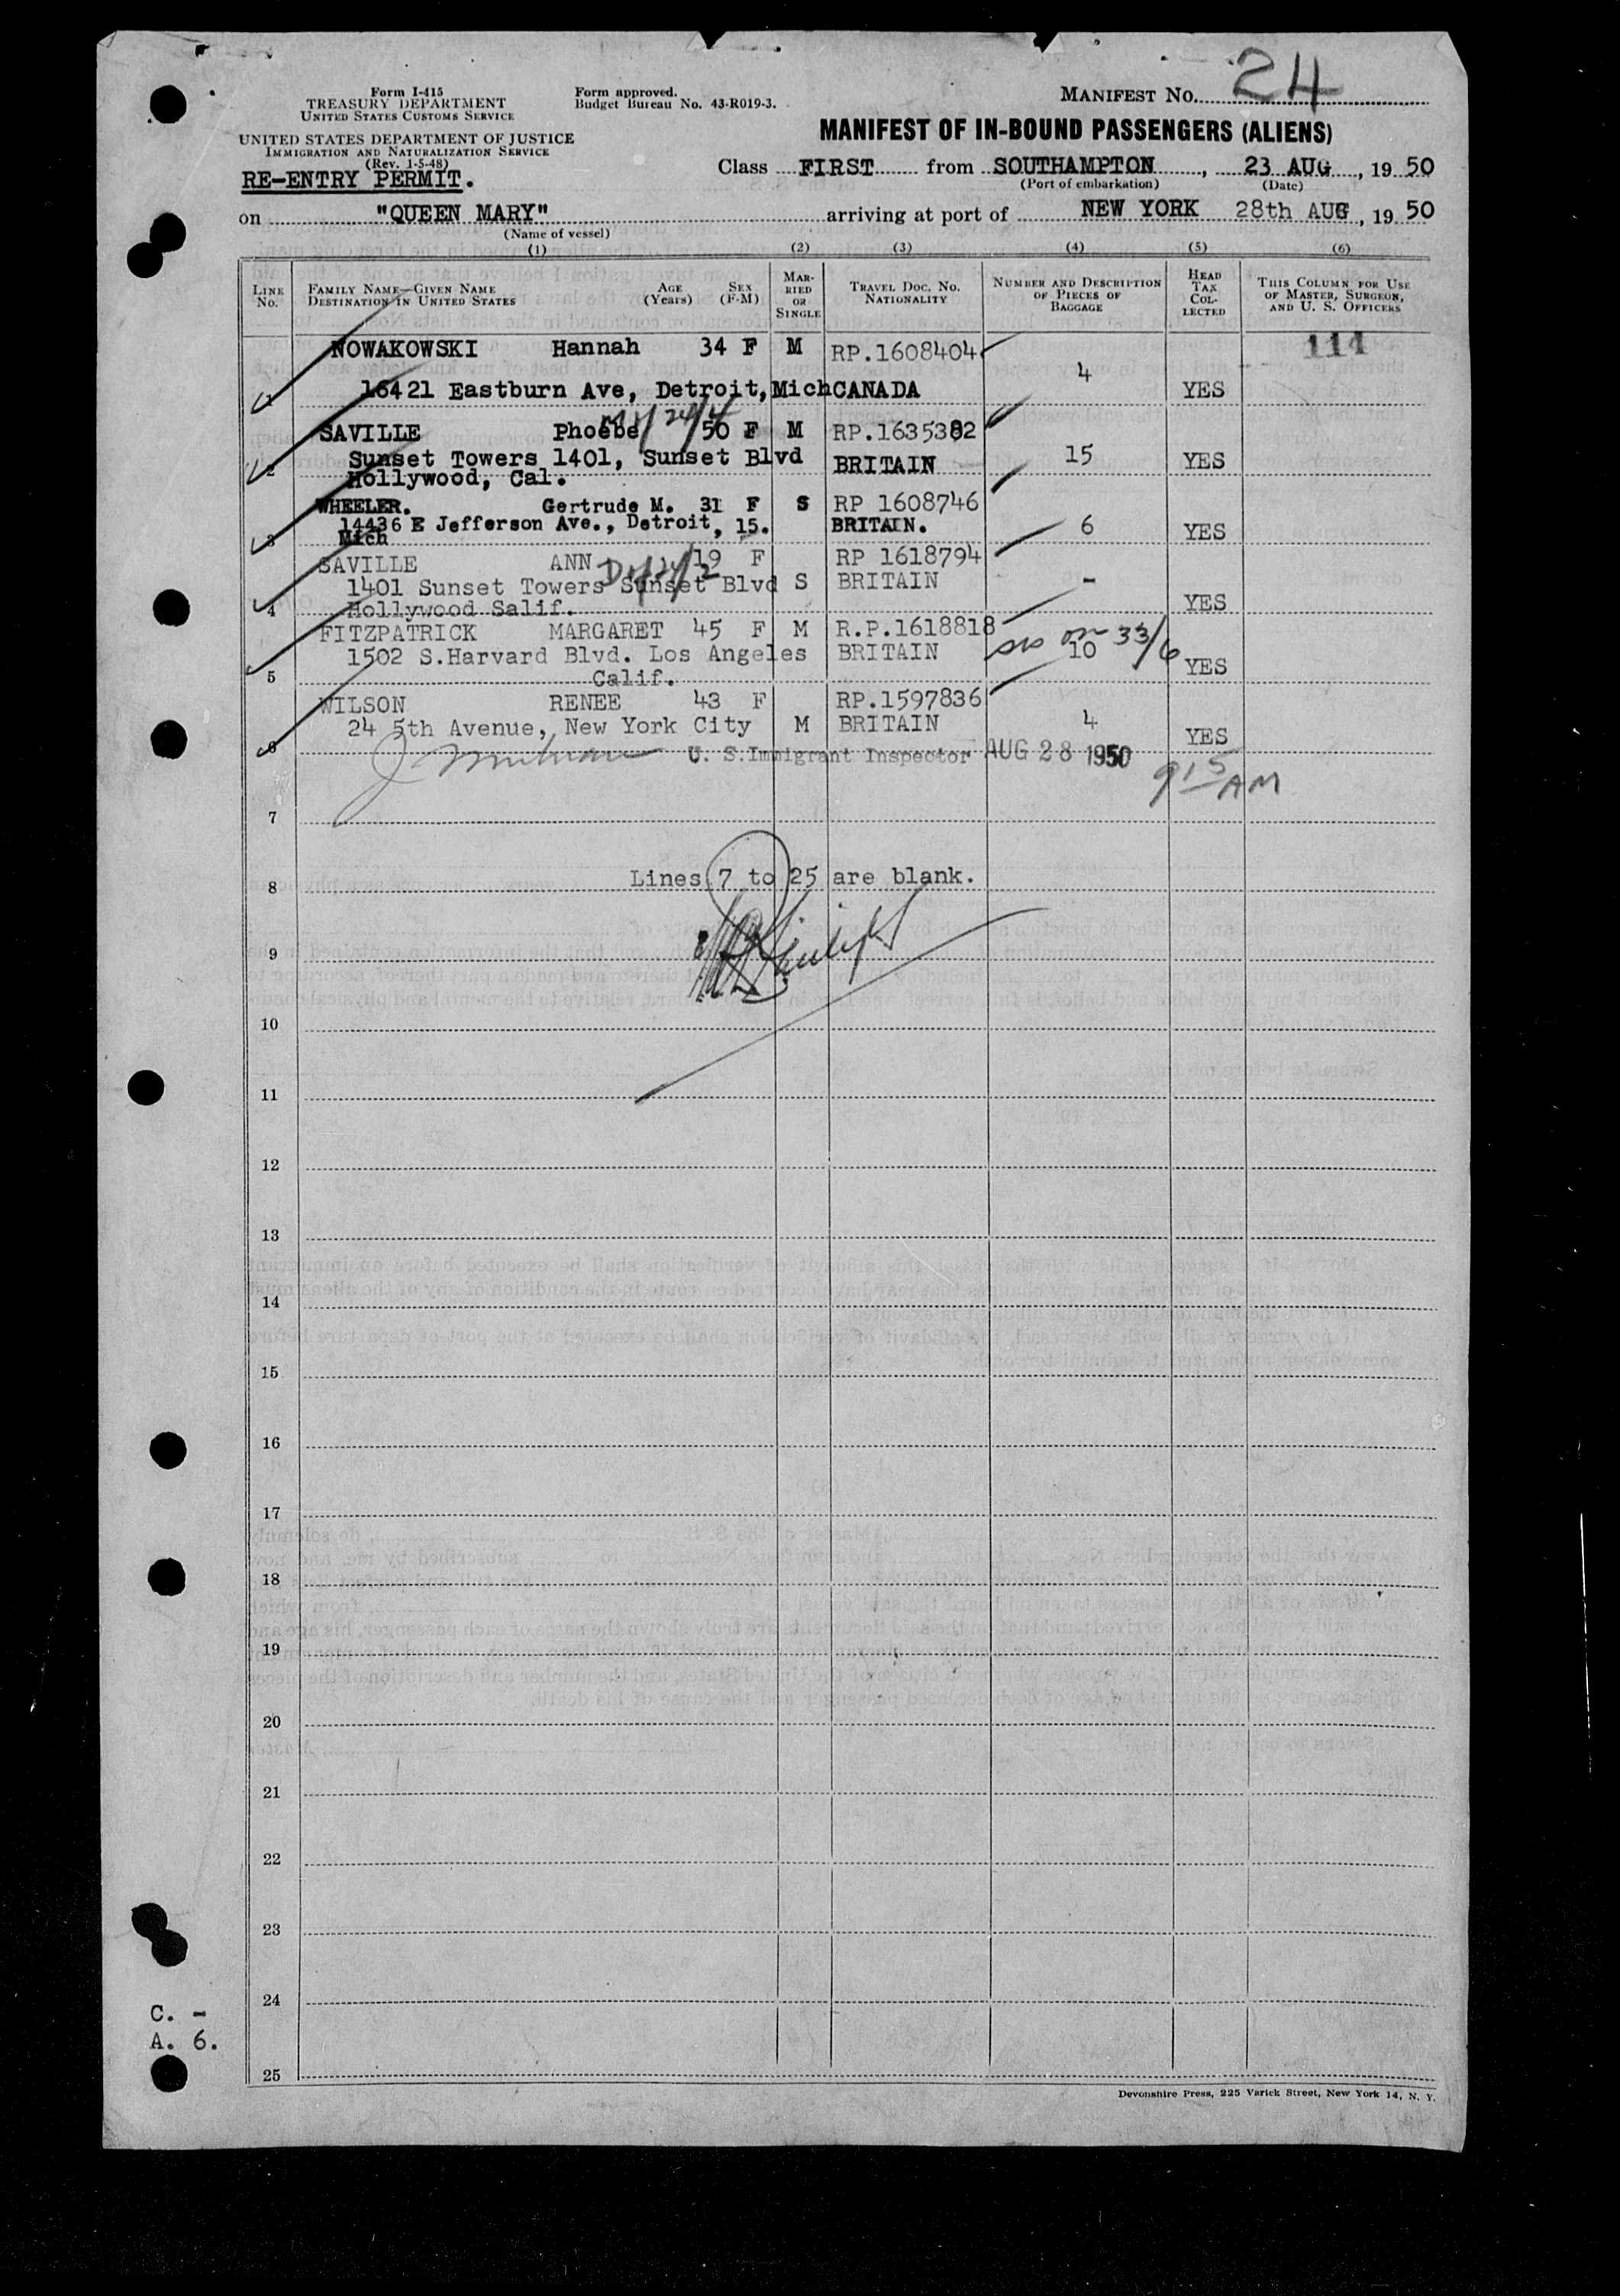 Form I-415
TREASURY DEPARTMENT
UNITED STATES CUSTOMS SERVICE
UNITED STATES DEPARTMENT OF JUSTICE
IMMIGRATION AND NATURALIZATION SERVICE
(Rev. 1-5-48)
RE-ENTRY PERMIT.
Form approved.
Budget Bureau No. 43-R019-3.
MANIFEST NO. 24
MANIFEST OF IN-BOUND PASSENGERS (ALIENS)
Class FIRST from SOUTHAMPTON, 23 AUG, 19 50
(Port of embarkation) (Date)
on "QUEEN MARY" arriving at port of NEW YORK 28th AUG, 19 50
(Name of vessel)
(1) (2) (3) (4) (5) (6)
LINE No.
FAMILY NAME—GIVEN NAME
DESTINATION IN UNITED STATES
AGE (Years)
SEX (F-M)
MARRIED OR SINGLE
TRAVEL DOC. NO. NATIONALITY
NUMBER AND DESCRIPTION OF PIECES OF BAGGAGE
HEAD TAX COLLECTED
THIS COLUMN FOR USE OF MASTER, SURGEON, AND U. S. OFFICERS
NOWAKOWSKI Hannah 34 F M RP.1608404 111
1 16421 Eastburn Ave, Detroit, Mich CANADA 4 YES
SAVILLE Phoebe 50 F M RP.1635382
2 Sunset Towers 1401, Sunset Blvd BRITAIN 15 YES
Hollywood, Cal.
WHEELER. Gertrude M. 31 F S RP 1608746
14436 E Jefferson Ave., Detroit, 15. BRITAIN. 6 YES
3 Mich
SAVILLE ANN 19 F RP 1618794
1401 Sunset Towers Sunset Blvd S BRITAIN - YES
4 Hollywood Salif.
FITZPATRICK MARGARET 45 F M R.P.1618818
on 33/6
1502 S.Harvard Blvd. Los Angeles BRITAIN 10 YES
5 Calif.
WILSON RENEE 43 F RP.1597836
24 5th Avenue, New York City M BRITAIN 4 YES
6 U. S. Immigrant Inspector AUG 28 1950
915 AM
7
Lines 7 to 25 are blank.
8
9
10
11
12
13
14
15
16
17
18
19
20
21
22
23
24
25
C. -
A. 6.
Devonshire Press, 225 Varick Street, New York 14, N. Y.